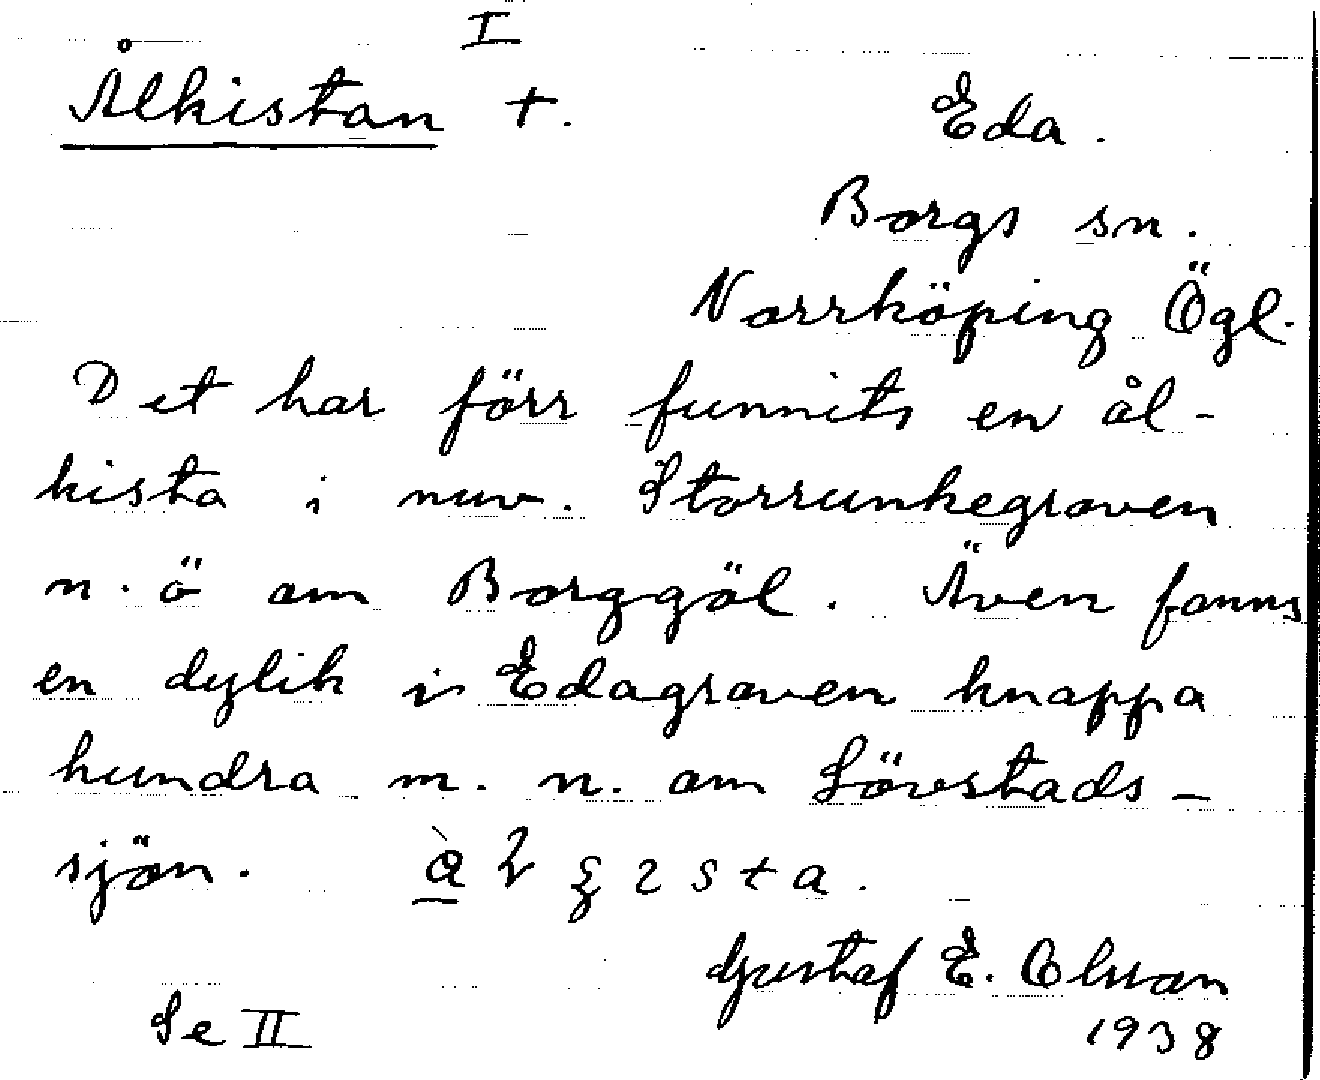 I
Ålkistan +.
Eda.
Borgs sn.
Norrköping Ögl.
Det har förr funnits en ål-
kista i nuv. Storrunkegraven
n. ö om Borggöl. Även fanns
en dylik i Edagraven knappa
hundra m. n. om Lövstads-
sjön.
Gustaf E. Olsson
Se II
1938